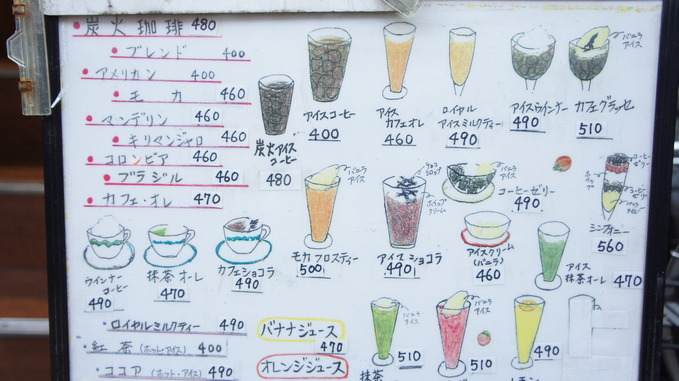 炭火珈琲 480
ブレンド 400
アメリカン 400
モカ 460
マンデリン 460
キリマンジャロ 460
コロンビア 460
ブラジル 460
カフェ・オレ 470
炭火アイス
コーヒー
480
アイスコーヒー
400
アイス
カフェオレ
460
ロイヤル
アイスミルクティー
490
アイスウインナー
490
バニラ
アイス
カフェグラッセ
510
バニラ
アイス
モカフロスティー
500
チョコ
シロップ
ホイップ
クリーム
アイスショコラ
490
バニラ
アイス
コーヒーゼリー
490
アイスクリーム
(バニラ)
460
コーヒー
ゼリー
コーヒー
ゼリー
バニラ
アイス
560
アイス
抹茶オーレ 470
ウインナー
コーヒー
490
抹茶オーレ
470
カフェショコラ
490
・ロイヤルミルクティー 490
・紅茶(ホット・アイス) 400
・ココア(ホット・アイス) 490
バナナジュース
470
オレンジジュース
バニラ
アイス
510
抹茶
バニラ
アイス
510
490
レモン